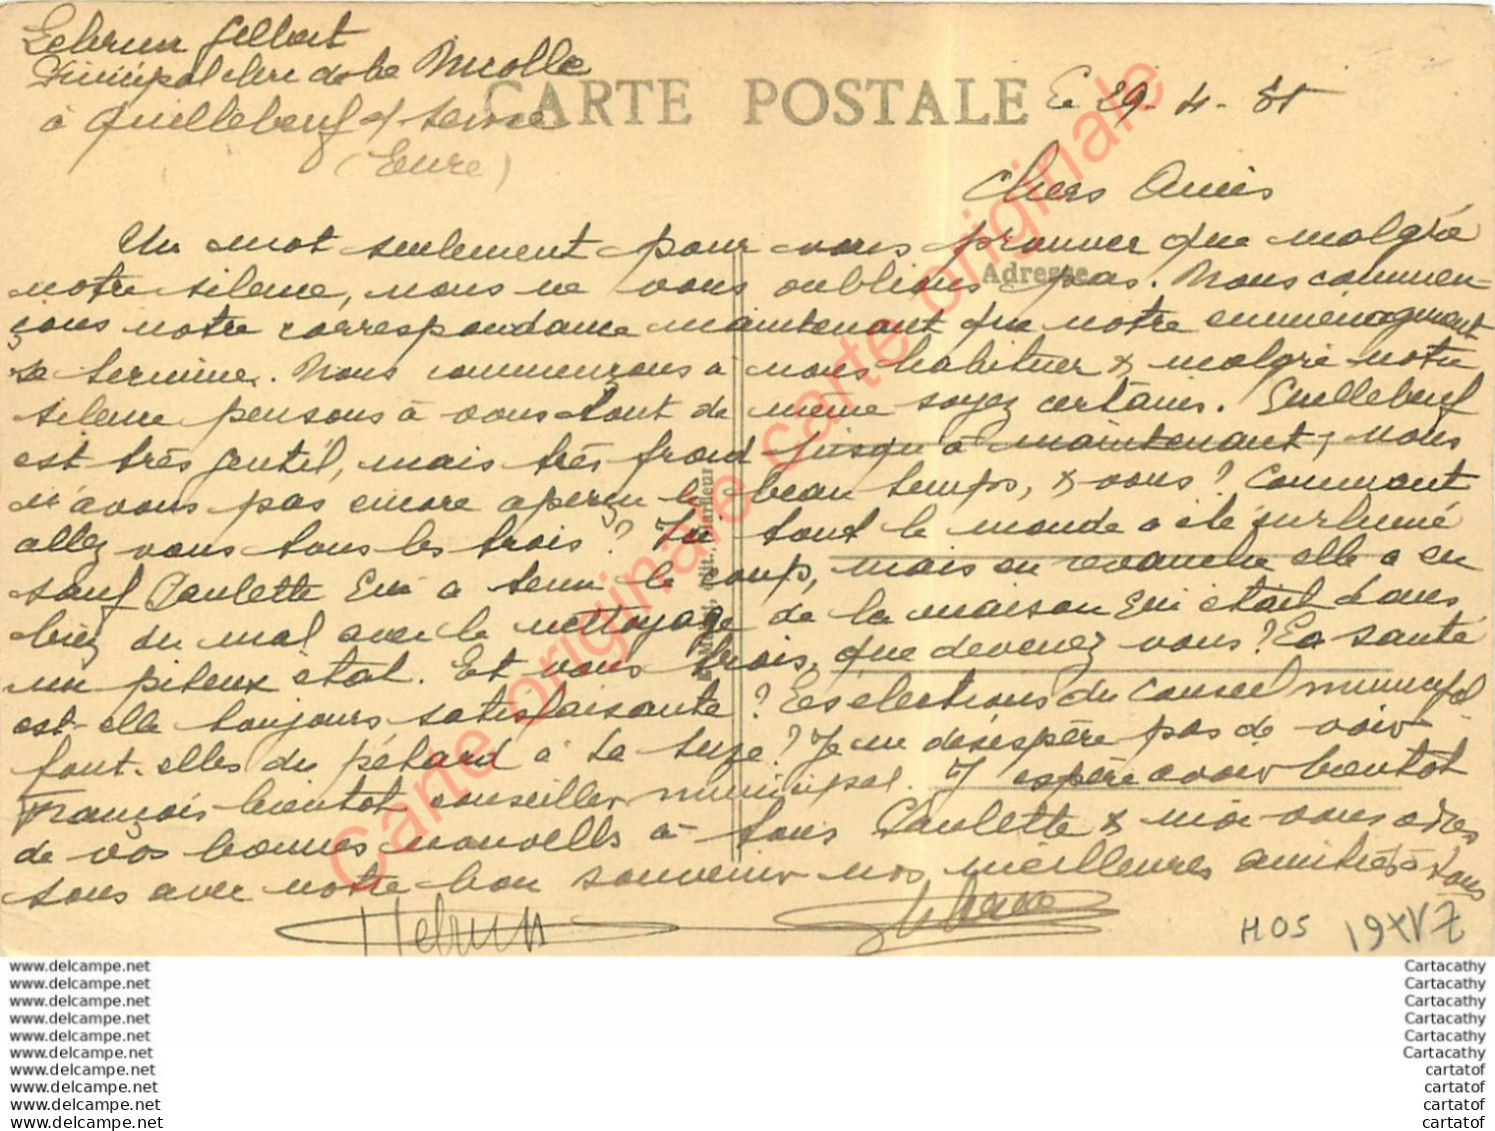 Lebrun Gilbert
Principal clerc de Me Nicolle
à Quillebeuf s/ Seine
(Eure)
CARTE POSTALE
Le 29-4-
Chers Amis
Un mot seulement pour vous prouver que malgré
Adresse
notre silence, nous ne vous oublions pas. Nous commen-
çons notre correspondance maintenant que notre emménagement
se termine. Nous commençons à nous habituer & malgré notre
silence pensons à vous tout de même soyez certains. Quillebeuf
est très gentil, mais très froid jusqu'à maintenant, nous
n'avons pas encore aperçu le beau temps, & vous? Comment
allez vous tous les trois? Ici tout le monde a été
sauf Paulette qui a tenu le coup, mais en revanche elle a eu
bien du mal avec le nettoyage de la maison qui était dans
un piteux état. Et vous trois, que devenez vous? La santé
est-elle toujours satisfaisante? Les élections du Conseil municipal
font-elles du pétard à La Suze? Je ne désespère pas de voir
François bientôt conseiller municipal. J'espère avoir bientôt
de vos bonnes nouvelles à tous Paulette & moi vous adres
sons avec notre bon souvenir nos meilleures amitiés à tous
Lebrun
HOS
Carte originale carte originale carte originale
www.delcampe.net
www.delcampe.net
www.delcampe.net
www.delcampe.net
www.delcampe.net
www.delcampe.net
www.delcampe.net
www.delcampe.net
www.delcampe.net
www.delcampe.net
Cartacathy
Cartacathy
Cartacathy
Cartacathy
Cartacathy
Cartacathy
cartatof
cartatof
cartatof
cartatof